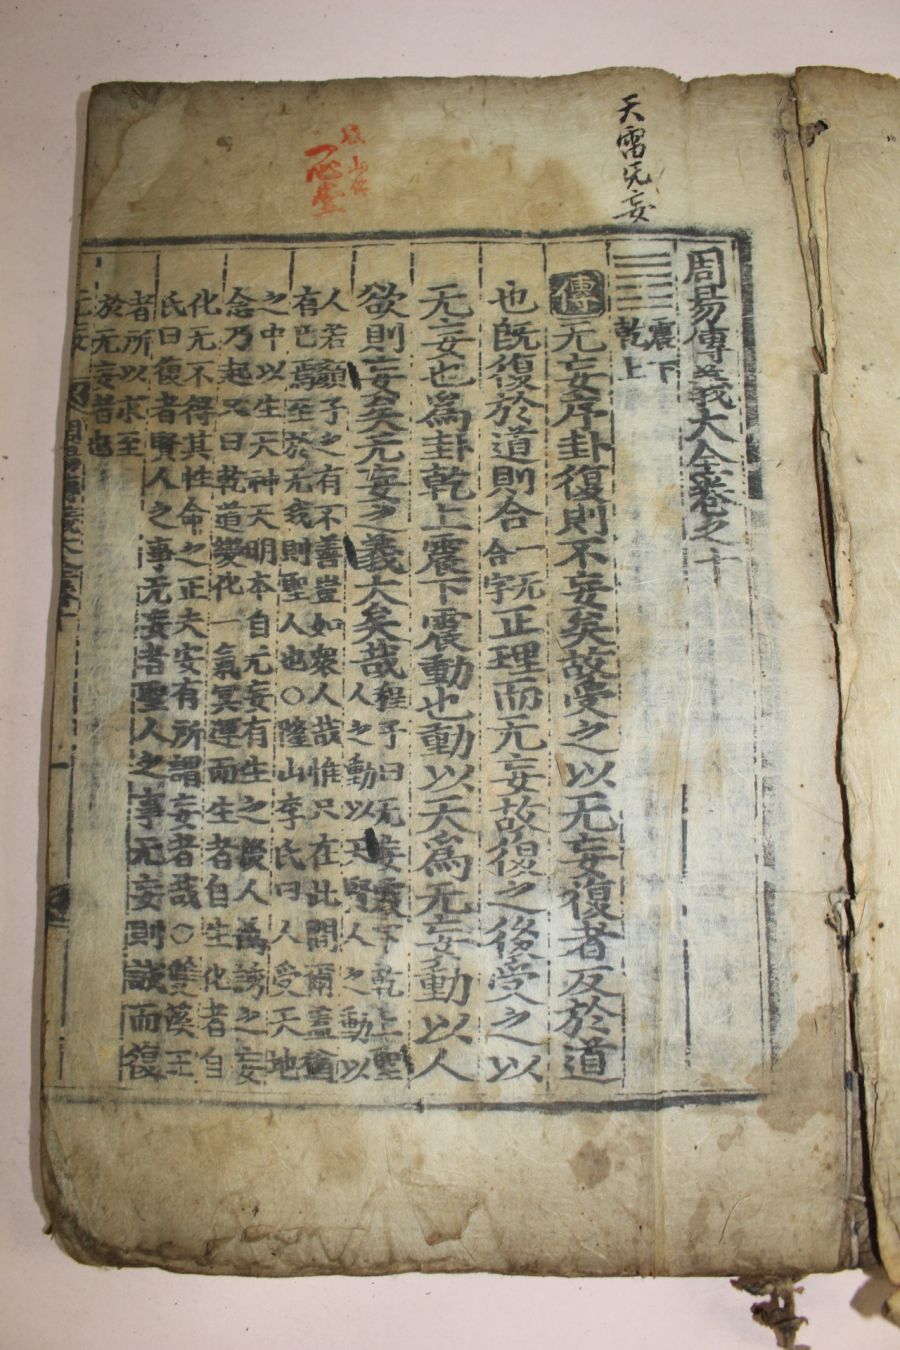 天雷无妄
周易傳義大全卷之十
震下
乾上
傳无妄序卦復則不妄矣故受之以无妄復者反於道
也旣復於道則合一无合字正理而无妄故復之後受之以
无妄也爲卦乾上震下震動也動以天爲无妄動以人
欲則妄矣无妄之義大矣哉程子曰无妄震下乾上聖
人之動以天賢人之動以
人若顔子之有不善豈如衆人哉惟只在此間爾蓋猶
有己焉至於无我則聖人也○隆山李氏曰人受天地
之中以生天神天明本自无妄有生之後人爲誘之妄
念乃起又曰乾道變化一氣冥運而生者自生化者自
化无不得其性命之正夫安有所謂妄者哉○雙溪王
氏曰復者賢人之事无妄者聖人之事无妄則誠而復
者所以求至
於无妄者也